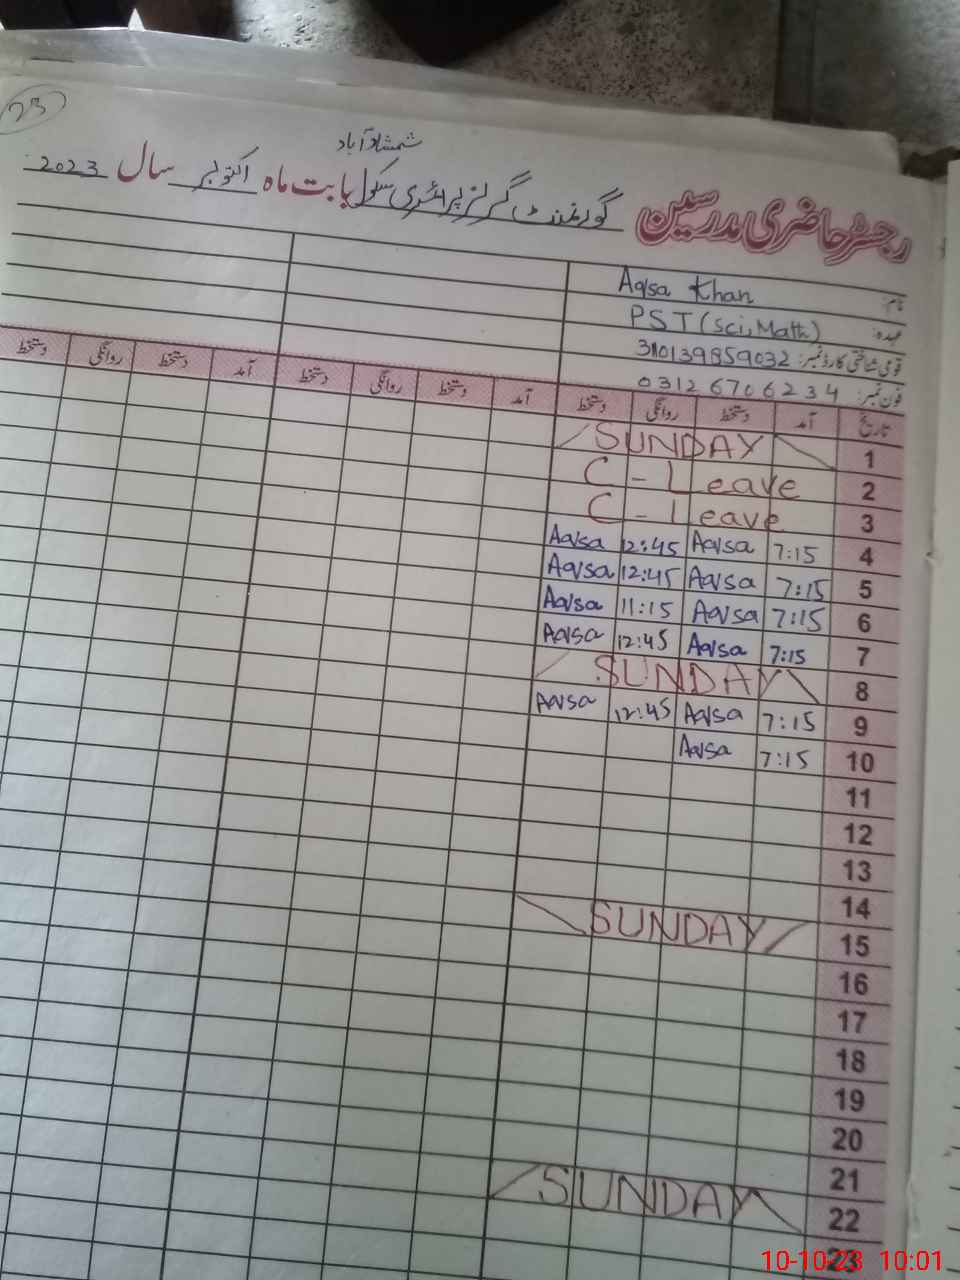 23
شمشادآباد
رجسٹر حاضری مدرسین گورنمنٹ گرلز پرائمری سکول بابت ماہ اکتوبر سال 2023
نام: Aqsa Khan
عہدہ: PST (Sci, Math)
قومی شناختی کارڈ نمبر: 310139859032
فون نمبر: 03126706234
تاریخ آمد دستخط روانگی دستخط آمد دستخط روانگی دستخط آمد دستخط روانگی دستخط
1 SUNDAY
2 C - Leave
3 C - Leave
4 7:15 Aqsa 12:45 Aqsa
5 7:15 Aqsa 12:45 Aqsa
6 7:15 Aqsa 11:15 Aqsa
7 7:15 Aqsa 12:45 Aqsa
8 SUNDAY
9 7:15 Aqsa 12:45 Aqsa
10 7:15 Aqsa
11
12
13
14
15 SUNDAY
16
17
18
19
20
21
22 SUNDAY
23
10-10-23 10:01